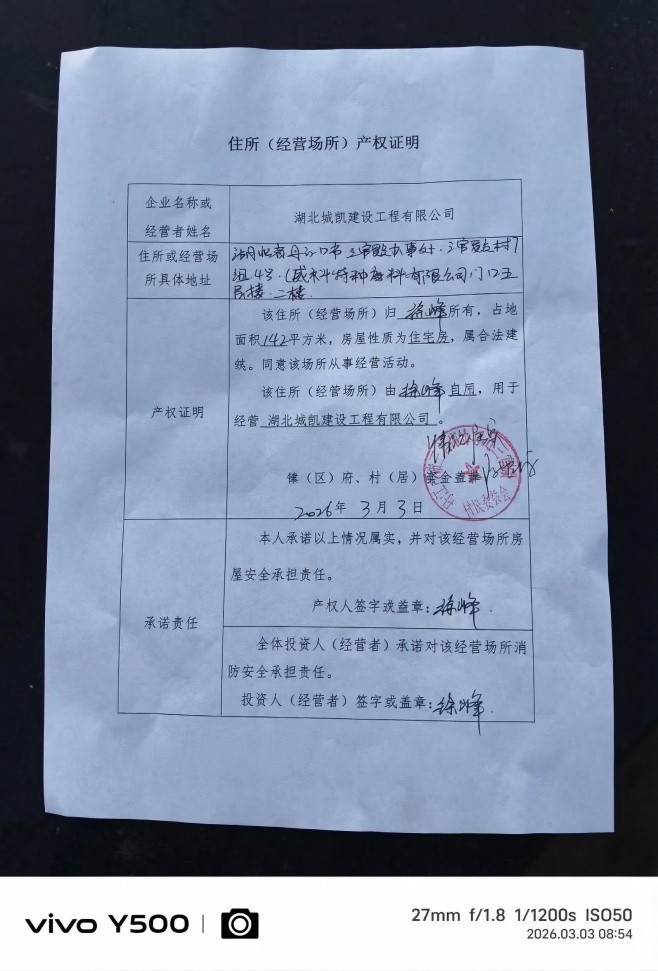 住所（经营场所）产权证明
企业名称或
经营者姓名
湖北城凯建设工程有限公司
住所或经营场
所具体地址
湖北省丹江口市三官殿办事处三官殿村7
组4号（威科特种材料有限公司门口五
房楼二楼
产权证明
该住所（经营场所）归 徐峰 所有，占地
面积142平方米，房屋性质为住宅房，属合法建
筑。同意该场所从事经营活动。
该住所（经营场所）由 徐峰 自用，用于
经营 湖北城凯建设工程有限公司 。
情况属实
镇（区）府、村（居）委会盖章
村民委员会
2026年 3月 3日
承诺责任
本人承诺以上情况属实，并对该经营场所房
屋安全承担责任。
产权人签字或盖章：徐峰
全体投资人（经营者）承诺对该经营场所消
防安全承担责任。
投资人（经营者）签字或盖章：徐峰
vivo Y500
27mm f/1.8 1/1200s ISO50
2026.03.03 08:54